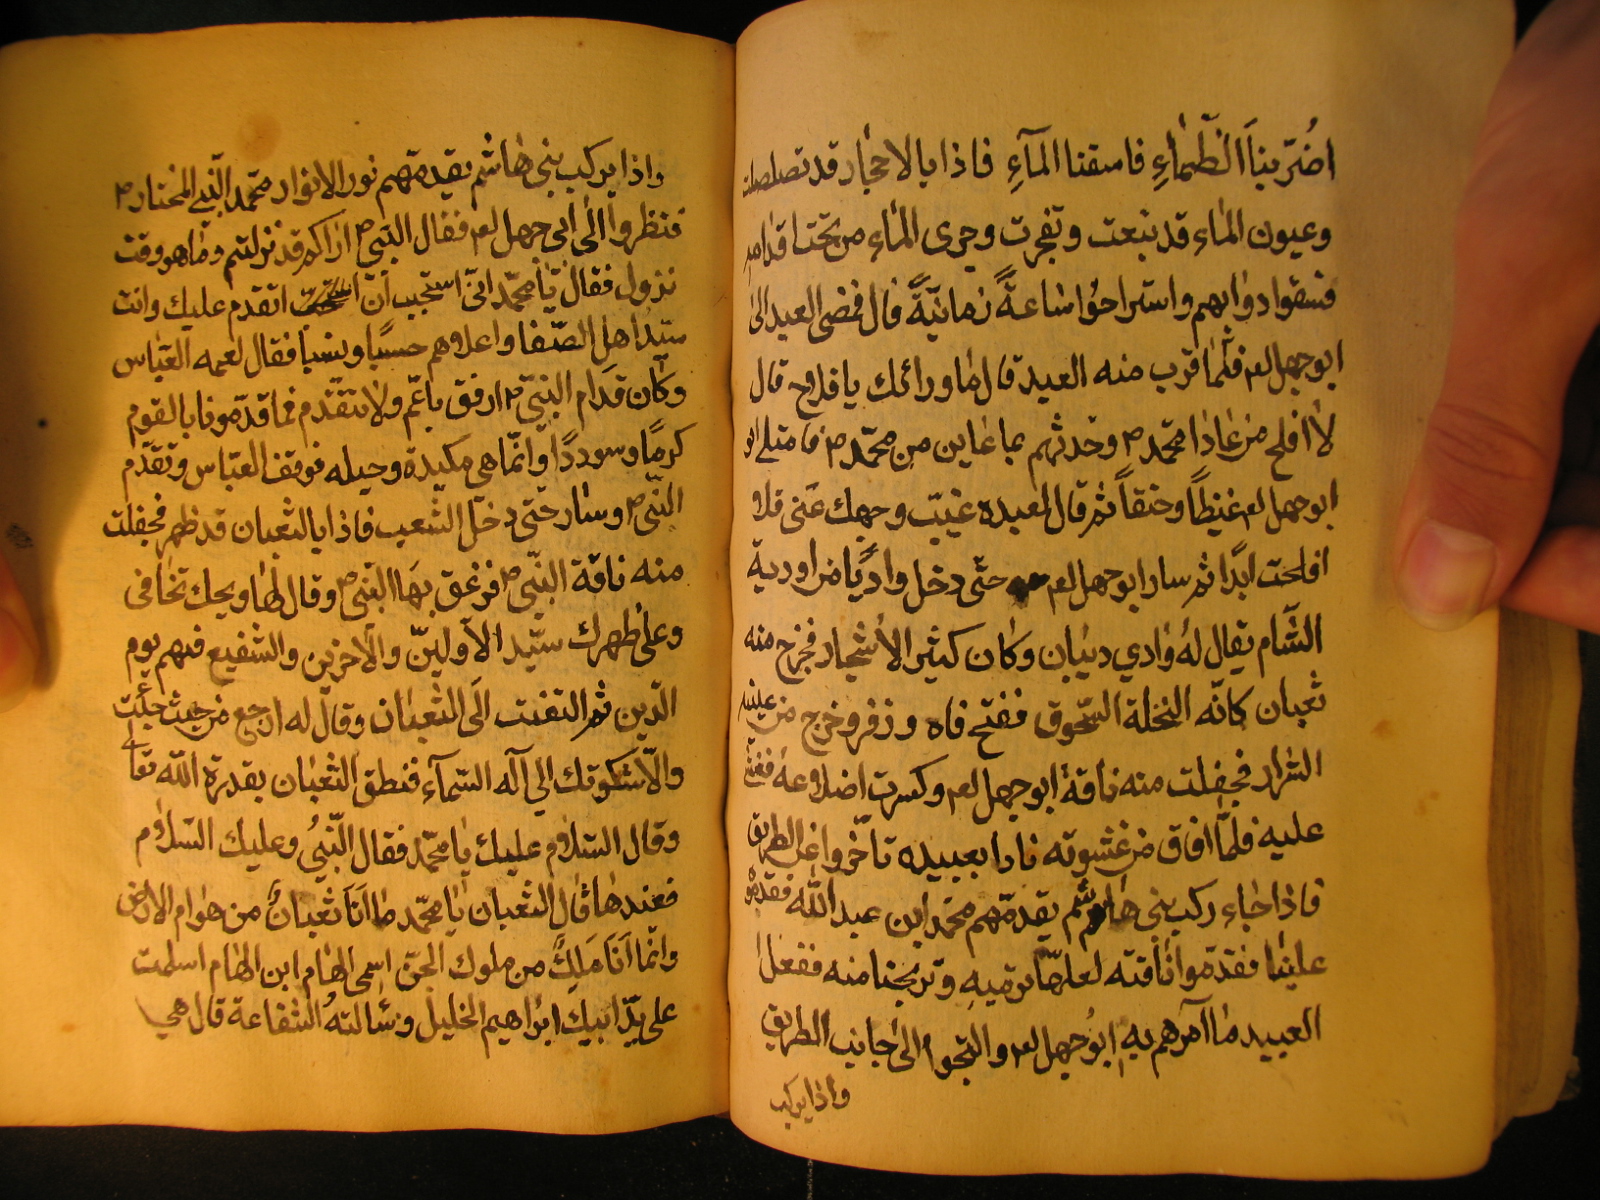 اضرّ بنا الظماءِ فاسقنا المآءِ فاذا بالاحجار قد تصلصلت
وعيون الماء قد نبعت وتفجرت وجرى الماء من تحت اقدامهم
فسقوا دوابهم واستراحوا ساعةً زمانيّةً قال فمضى العبد الى
ابوجهل لعم فلمّا قرب منه العبد قال ما ورائك يا فلاح قال
لا افلح من عادا محمد ص وحدثهم بما عاين من محمّد ص فامتلى ابو
ابوجهل لعم غيظاً وحنقاً ثم قال لعبيده غيّب وجهك عنى فلا
افلحت ابدًا ثم سار ابوجهل لعم حتى دخل واديًا من اودية
الشام يقال له وادي دبيان وكان كثير الاشجار فخرج منه
ثعبان كانّه النخلة السّحوق ففتح فاه وزفر وخرج من عينيه
الشرار فجفلت منه ناقة ابوجهل لعم وكسرت اضلاعه فغشى
عليه فلمّا افاق من غشوته نادا بعبيده تاخّروا عن الطريق
فاذا جاء ركب بنى هاشم يقدمّهم محمد ابن عبد الله فقدموه
علينا فقدموا ناقته لعلها ترميهِ وتريحنا منه ففعلا
العبيد ما امرهم به ابوجهل لعم والتجوا الى جانب الطريق
واذا بركب
واذا بركب بنى هاشم يقدمّهم نور الانوار محمد النّبي المختار ص
فنظروا الى ابى جهل لعم فقال النبي ص اراكم قد نزلتم وما هو وقت
نزول فقال يا محمّد انىّ استحيت ان اتقدم عليك وانت
سيّد اهل الصّفا واعلاهم حسبًا ونسبا فقال لعمه العباس
وكان قدام النبيّ ص ارفق يا عمّ ولا تتقدّم فما قدمونا بالقوم
كرمًا وسوددًا وانّما هي مكيدة وحيله فوقف العبّاس وتقدّم
النّبى ص وسار حتى دخل الشعب فاذا بالثعبان قد ظهر فجفلت
منه ناقة النبّي ص فزعق بها النّبي ص وقال لها ويحك تخافى
وعلى ظهرك سيّد الاولينّ والآخرين والشفيع فيهم يوم
الدّين ثم التفت الى الثعبان وقال له ارجع من حيث جئت
والّا شكوتك الى اله السّمآء فنطق الثعبان بقدرة الله تعالى
وقال السّلام عليك يا محمّد فقال النّبيُ وعليك السّلام
فعندها قال الثعبان يا محمّد ما انَا ثعبانُ من هوام الارض
وانّما انَا مَلِكٌ من ملوك الجنّ اسمى الهام ابن الهام اسلمت
على يدّ ابيك ابراهيم الخليل وسالته الشفاعة قال هي